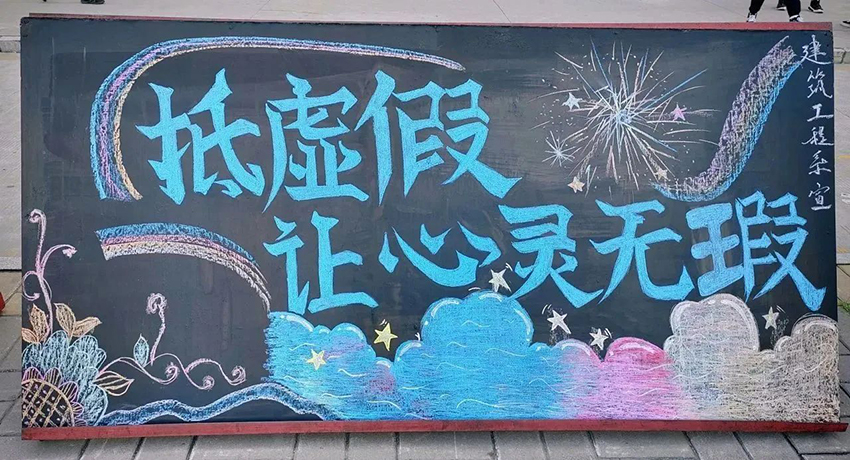 抵虚假
让心灵无瑕
建筑工程系宣